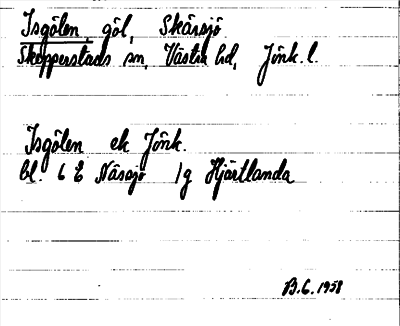 Isgölen, göl, Skärsjö
Skepperstads sn, Västra hd, Jönk. l.
Isgölen ek Jönk.
bl. 6 E Nässjö 1g Hjärtlanda
B.G. 1958